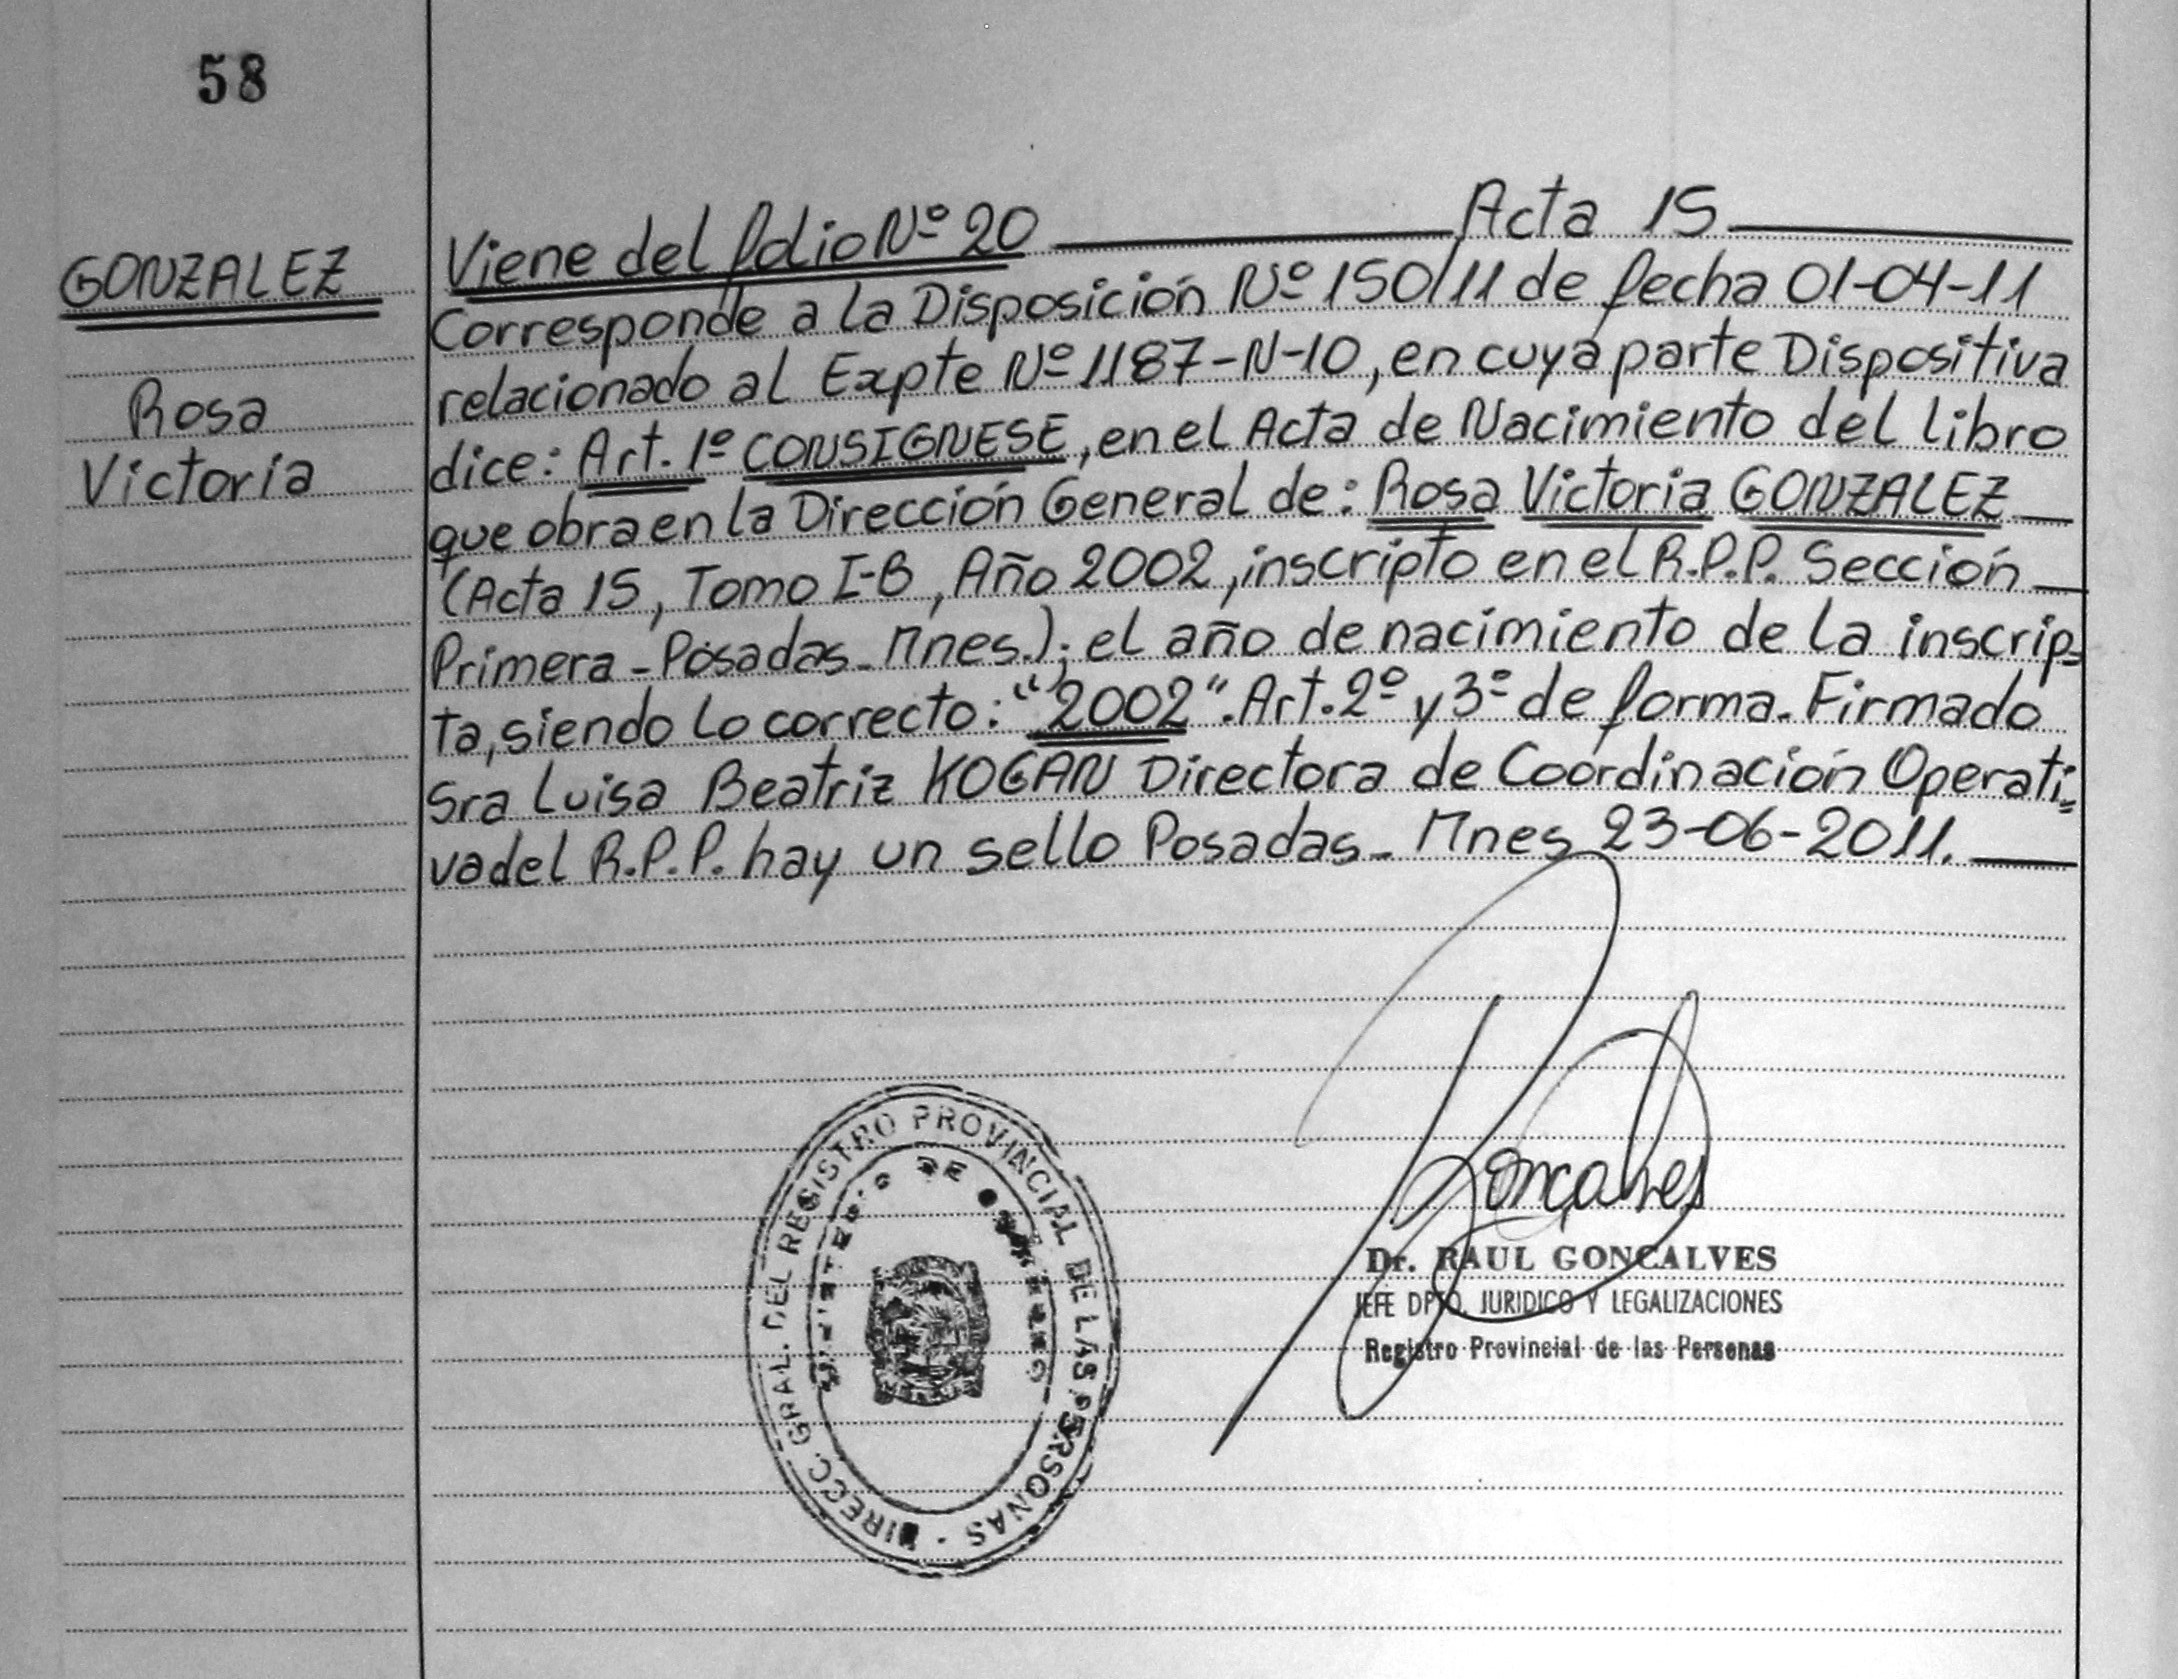 58
GONZALEZ
Rosa
Victoria
Viene del folio Nº 20 Acta 15
Corresponde a la Disposición Nº 150/11 de fecha 01-04-11
relacionado al Expte Nº 1187-N-10, en cuya parte Dispositiva
dice: Art. 1º CONSIGNESE, en el Acta de Nacimiento del libro
que obra en la Dirección General de: Rosa Victoria GONZALEZ
(Acta 15, Tomo I-B, Año 2002, inscripto en el R.P.P. Sección
Primera - Posadas - Mnes.); el año de nacimiento de la inscrip-
ta, siendo lo correcto: "2002". Art. 2º y 3º de forma. Firmado
Sra Luisa Beatriz KOGAN Directora de Coordinación Operati-
va del R.P.P. hay un sello Posadas - Mnes 23-06-2011.
DIRECC. GRAL. DEL REGISTRO PROVINCIAL DE LAS PERSONAS -
MINISTERIO DE GOBIERNO
Gonçalves
Dr. RAUL GONCALVES
JEFE DPTO. JURIDICO Y LEGALIZACIONES
Registro Provincial de las Personas